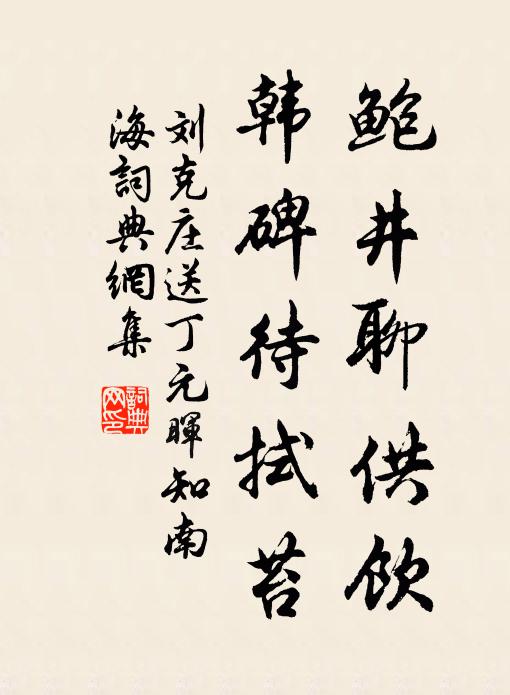 鲍井聊供饮
韩碑待拭苔
刘克庄送丁元暉知南
海詞典網集
詞典
网印